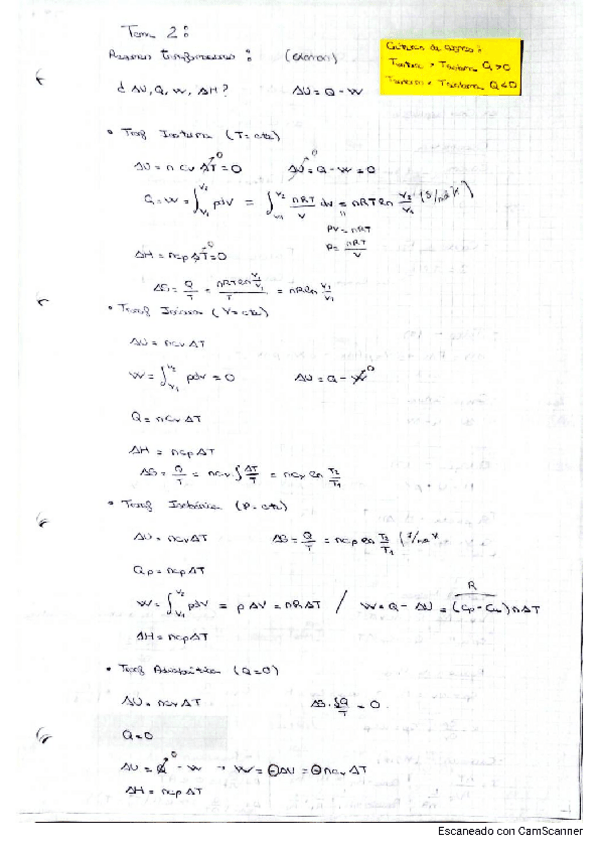 Tema 2:
Resumen transformaciones: (examen)
Criterios de signos:
Q>0
Q<0
¿ ΔU, Q, W, ΔH? ΔU = Q - W
• Transf Isoterma (T=cte)
ΔU = n cv ΔT = 0 ΔU = Q - W = 0
Q = W = ∫ pdV = ∫ nRT/V dv = nRT ln V2/V1
PV = nRT
P = nRT/V
ΔH = ncp ΔT = 0
ΔS = Q/T = nRT ln V2/V1 / T = nR ln V2/V1
• Transf Isócora (V=cte)
ΔU = ncv ΔT
W = ∫ pdv = 0 ΔU = Q - W
Q = ncv ΔT
ΔH = ncp ΔT
ΔS = Q/T = ncv ∫ ΔT/T = ncv ln T2/T1
• Transf Isobárica (P=cte)
ΔU = ncv ΔT ΔS = Q/T = ncp ln T2/T1
Qp = ncp ΔT
W = ∫ pdv = p ΔV = nRΔT / W = Q - ΔU = (cp - cv) nΔT
R
ΔH = ncp ΔT
• Transf Adiabática (Q=0)
ΔU = ncv ΔT ΔS = δQ/T = 0
Q=0
ΔU = Q - W → W = -ΔU = -ncv ΔT
ΔH = ncp ΔT
Escaneado con CamScanner